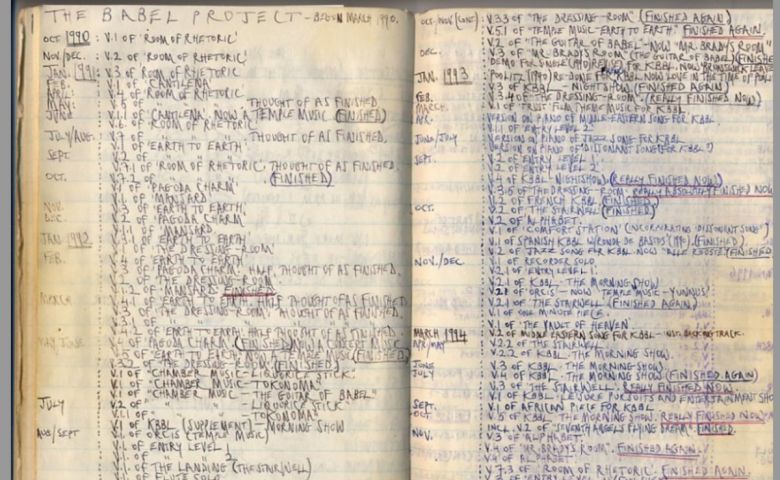 THE BABEL PROJECT - BEGUN MARCH 1990.
OCT 1990 : V.1 OF 'ROOM OF RHETORIC'
NOV/DEC. : V.2 OF 'ROOM OF RHETORIC'
JAN. 1991 : V.3 OF 'ROOM OF RHETORIC'
FEB. : V.1 OF 'CANTILENA'
APRIL : V.4 OF 'ROOM OF RHETORIC'
MAY : V.5 OF " " THOUGHT OF AS FINISHED.
JUNE : V.1.1 OF 'CANTILENA', NOW A TEMPLE MUSIC (FINISHED)
V.6 OF 'ROOM OF RHETORIC'.
JULY/AUG. : V.7 OF " " THOUGHT OF AS FINISHED.
V.1 OF 'EARTH TO EARTH'
SEPT. : V.2 OF " "
V.7.1 OF 'ROOM OF RHETORIC' THOUGHT OF AS FINISHED.
OCT. : V.7.2 OF " " (FINISHED)
V.1 OF 'PAGODA CHARM'
V.1 OF 'MANSARD'
NOV. : V.3 OF 'EARTH TO EARTH'
DEC. : V.2 OF 'PAGODA CHARM'
V.1.1 OF 'MANSARD'
JAN 1992 : V.3.1 OF 'EARTH TO EARTH'
V.1 OF 'THE DRESSING-ROOM'
FEB. : V.4 OF 'EARTH TO EARTH'
V.3 OF 'PAGODA CHARM', HALF THOUGHT OF AS FINISHED.
V.2 OF 'THE DRESSING-ROOM'
V.1.2 OF 'MANSARD' FINISHED
MARCH : V.4.1 OF 'EARTH TO EARTH' HALF THOUGHT OF AS FINISHED.
V.3 OF 'THE DRESSING-ROOM' THOUGHT OF AS FINISHED.
V.3.1 OF "
V.4.2 OF 'EARTH TO EARTH' HALF THOUGHT OF AS FINISHED.
MAY JUNE : V.4 OF 'PAGODA CHARM' (FINISHED) NOW A CONCERT MUSIC
V.5 OF 'EARTH TO EARTH' NOW A TEMPLE MUSIC (FINISHED)
V.3.2 OF 'THE DRESSING-ROOM' (FINISHED)
V.1 OF "CHAMBER MUSIC - LIQUORICE STICK"
V.1 OF "CHAMBER MUSIC - TOKONOMA"
V.1 OF "CHAMBER MUSIC - THE GUITAR OF BABEL"
JULY : V.2 OF " - LIQUORICE STICK"
V.1.1 OF " - TOKONOMA"
V.1 OF KBBL (SUPPLEMENT) - MORNING SHOW
AUG/SEPT : V.1 OF ORCIS (TEMPLE MUSIC)
V.1 OF ENTRY LEVEL 1
V.1 OF " 2
V.1 OF THE LANDING (THE STAIRWELL)
V.1 OF FLUTE SOLO
OCT/NOV (CONT) : V.3.3 OF "THE DRESSING-ROOM" (FINISHED AGAIN)
V.5.1 OF "TEMPLE MUSIC - EARTH TO EARTH" FINISHED AGAIN.
V.2 OF "THE GUITAR OF BABEL" - NOW "MR. BRADY'S ROOM"
DEC. : V.3 OF "MR. BRADY'S ROOM" (THE GUITAR OF BABEL) (FINISHED
DEMO FOR SINGLE (1990) REUSED FOR KBBL NOW
JAN. 1993 : (1990) RE-DONE FOR KBBL NOW LOVE IN THE TIME OF
V.3 OF KBBL - NIGHTSHOW (FINISHED AGAIN)
FEB. : V.3.4 OF "THE DRESSING-ROOM". (REALLY FINISHED NOW)
MARCH : MUSIC FOR KBBL
APR. : VERSION ON PIANO OF MIDDLE-EASTERN SONG FOR KBBL
V.1.1 OF 'ENTRY LEVEL 2'
JUNE/JULY : VERSION ON PIANO OF JAZZ SONG FOR KBBL
VERSION ON PIANO OF 'DISSONANT SONG (FOR KBBL?)
SEPT. : V.2 OF ENTRY LEVEL 1
V.2 OF ENTRY LEVEL 2
V.4 OF KBBL - NIGHTSHOW (REALLY FINISHED NOW)
V.3.5 OF "THE DRESSING-ROOM" REALLY ABSOLUTELY FINISHED NOW
V.2 OF FRENCH KBBL (FINISHED)
OCT. : V.2 OF THE STAIRWELL (FINISHED)
V.2 OF 'ALPHABET'.
V.1 OF 'COMFORT STATION' (INCORPORATING 'DISSONANT SONG')
V.1 OF SPANISH KBBL (1990). (FINISHED)
V.2 OF JAZZ SONG FOR KBBL NOW (FINISHED
NOV./DEC : V.1 OF RECORDER SOLO
V.2.1 OF 'ENTRY LEVEL 1'
V.2.1 OF KBBL - THE MORNING SHOW
V.2.1 OF ORCIS - NOW 'TEMPLE MUSIC - YUNNUS'
V.2.1 OF THE STAIRWELL (FINISHED AGAIN)
V.1 OF ONE MINUTE PIECE.
V.1 OF THE VAULT OF HEAVEN
MARCH 1994 : V.2 OF MIDDLE EASTERN SONG FOR KBBL - BACKING TRACK.
APR/MAY : V.2.2 OF THE STAIRWELL.
V.2.2 OF KBBL. THE MORNING SHOW.
JUNE : V.3 OF KBBL - THE MORNING SHOW
JULY : V.4 OF KBBL - THE MORNING SHOW (FINISHED AGAIN)
V.3 OF THE STAIRWELL - REALLY FINISHED NOW
V.1 OF KBBL - LEISURE PURSUITS AND ENTERTAINMENT SHO
SEPT : V.1 OF AFRICAN PIECE FOR KBBL
OCT : V.5 OF KBBL - THE MORNING SHOW. REALLY FINISHED NOW
INCL. V.2 OF "SEVENTH ANGEL'S FLYING DREAM". FINISHED.
NOV. : V.3 OF 'ALPHABET'.
V.4 OF "MR. BRADY'S ROOM". FINISHED AGAIN.
V.4 OF ALPHABET.
V.7.3 OF 'ROOM OF RHETORIC'. FINISHED AGAIN.